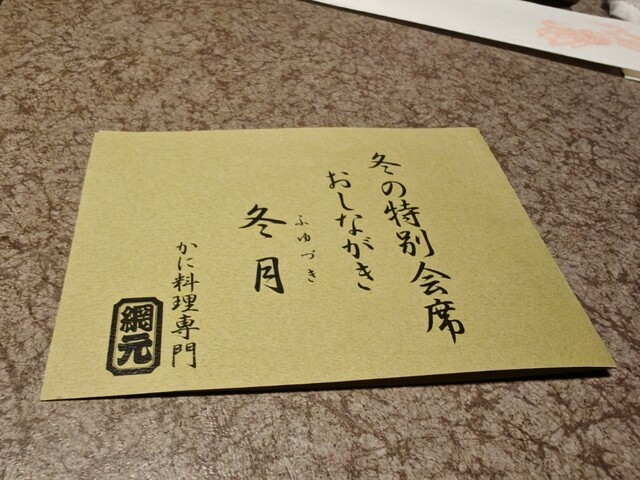 冬の特別会席
おしながき
ふゆづき
冬月
かに料理専門
網元